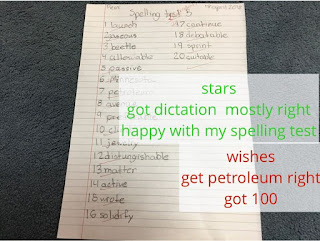 Spelling test 5
1 launch
2 gaseous
3 beetle
4 allowable
5 passive
6
7 petroleum
8
9
10
11 jewelry
12 distungishable
13 matter
14 active
15 wrote
16 solidify
17 continue
18 debatable
19 sprint
20
stars
got dictation mostly right
happy with my spelling test
wishes
get petroleum right
got 100